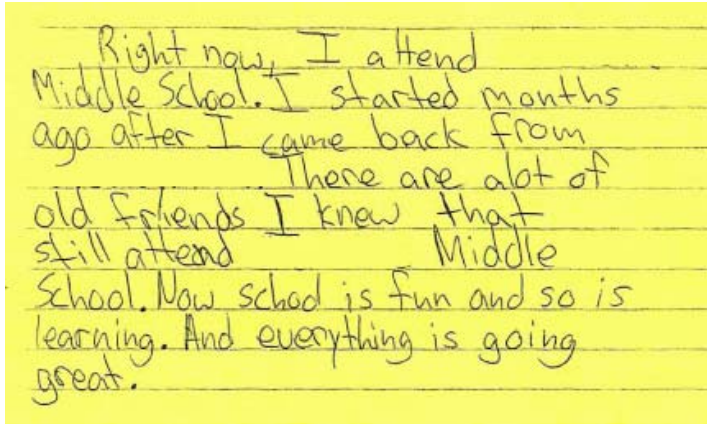 Right now, I attend
Middle School. I started months
ago after I came back from
There are alot of
old friends I knew that
still attend Middle
School. Now school is fun and so is
learning. And everything is going
great.